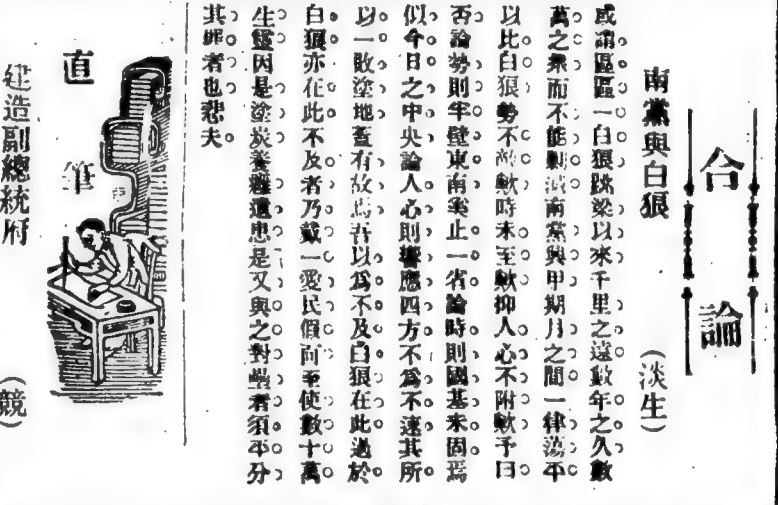 合論
南黨與白狼
(淡生)
或謂區區一白狼跳梁以來千里之遠數年之久數
萬之衆而不能剿滅南黨興甲期月之間一律蕩平
以比白狼勢不敵歟時未至歟抑人心不附歟予曰
否論勢則半壁東南奚止一省論時則國基未固焉
似今日之中央論人心則響應四方不爲不速其所
以一敗塗地蓋有故焉吾以爲不及白狼在此過於
白狼亦在此不及者乃戴一愛民假面至使數十萬
生靈因是塗炭養雞遺患是又與之對壘者須平分
其罪者也悲夫
直筆
建造副總統府
(競)